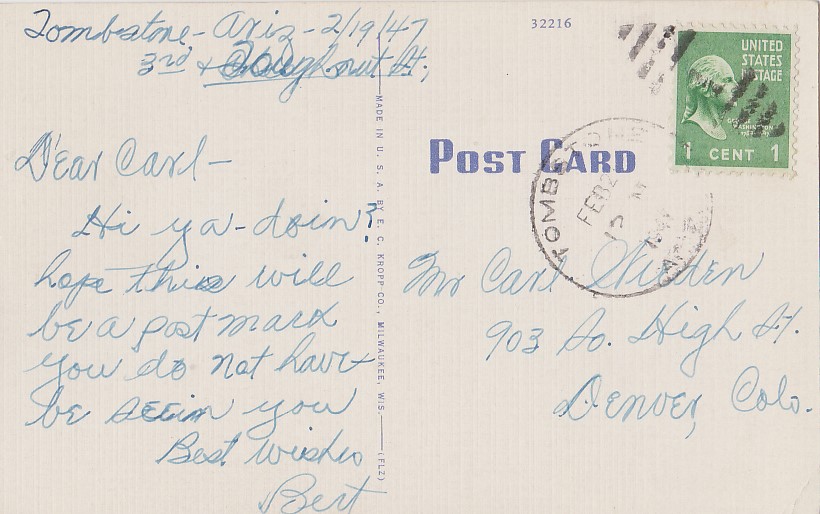 Tombstone - Ariz - 2/19/47
3rd & Toughnut St,
Dear Carl -
Hi ya - doin?
hope this will
be a post mark
you do not have
be seein you
Best wishes
Bert
MADE IN U. S. A. BY E. C. KROPP CO., MILWAUKEE, WIS. (FLZ)
32216
POST CARD
UNITED
STATES
POSTAGE
GEORGE
WASHINGTON
1 CENT 1
TOMBSTONE
FEB 2
Mr Carl
903 So. High St.
Denver, Colo.